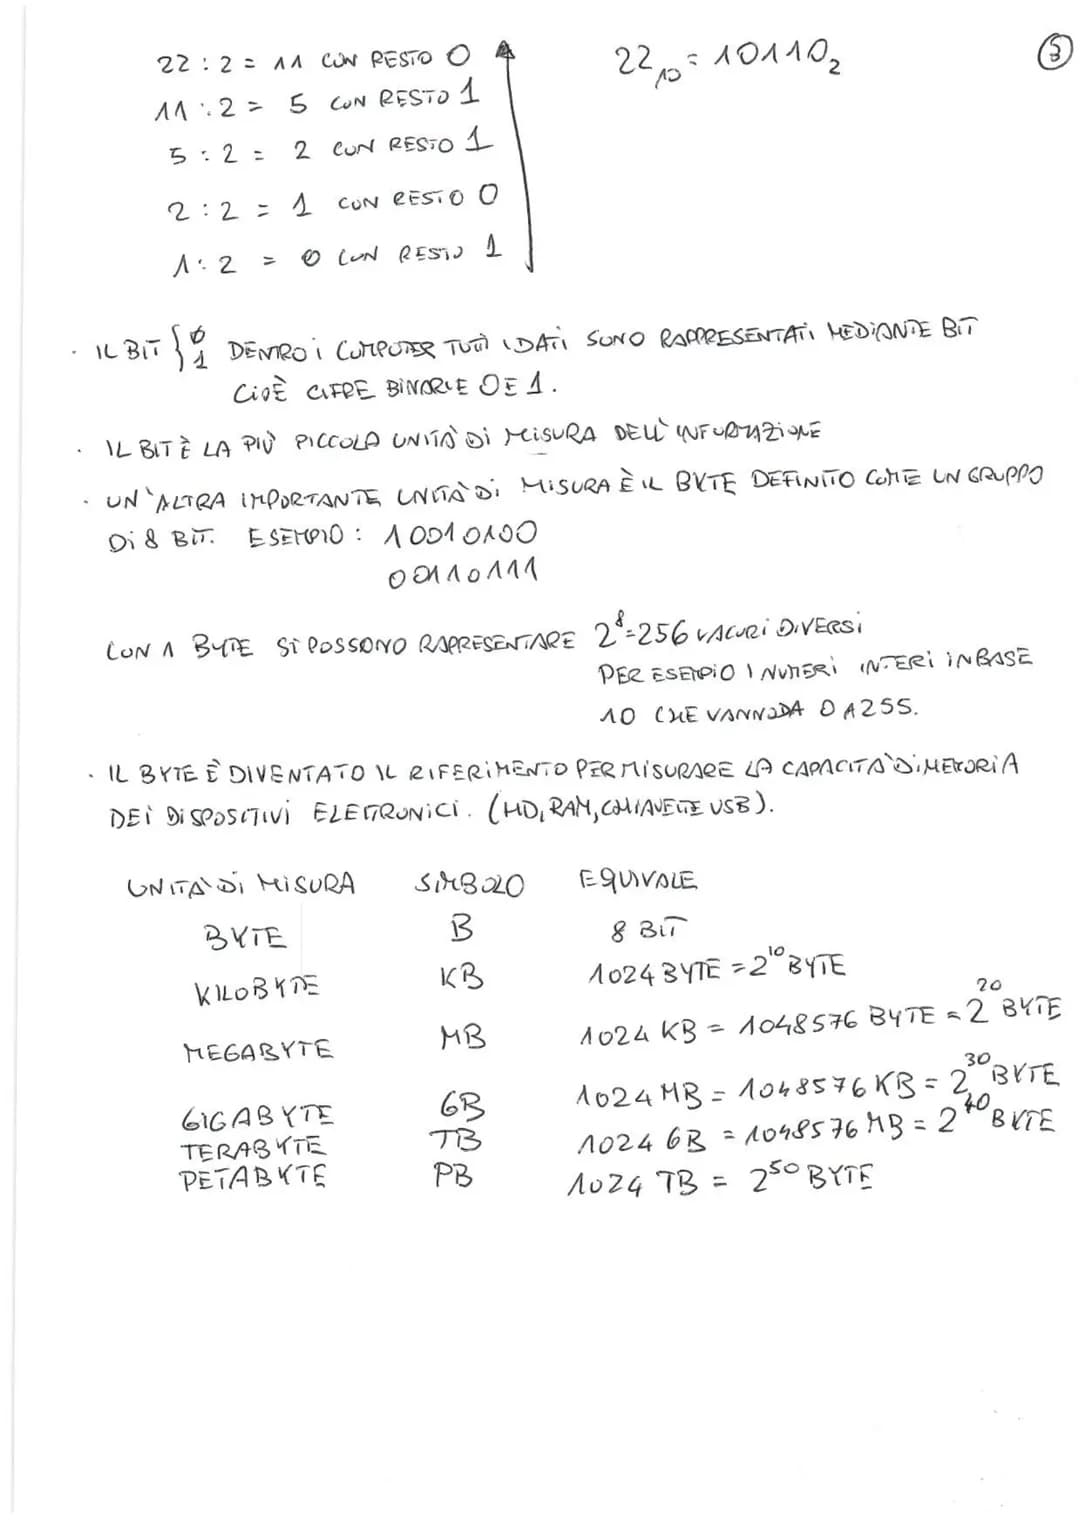 22 : 2 = 11 CON RESTO 0 22₁₀ = 10110₂ 3
11 : 2 = 5 CON RESTO 1
5 : 2 = 2 CON RESTO 1
2 : 2 = 1 CON RESTO 0
1 : 2 = 0 CON RESTO 1
· IL BIT { 0 1 DENTRO i COMPUTER TUTTI I DATI SONO RAPPRESENTATI MEDIANTE BIT
CIOÈ CIFRE BINARIE 0 E 1.
· IL BIT È LA PIÙ PICCOLA UNITÀ DI MISURA DELL'INFORMAZIONE
· UN'ALTRA IMPORTANTE UNITÀ DI MISURA È IL BYTE DEFINITO COME UN GRUPPO
DI 8 BIT. ESEMPIO : 10010100
00110111
CON 1 BYTE SI POSSONO RAPRESENTARE 2⁸=256 VALORI DIVERSI
PER ESEMPIO I NUMERI INTERI IN BASE
10 CHE VANNO DA 0 A 255.
· IL BYTE È DIVENTATO IL RIFERIMENTO PER MISURARE LA CAPACITÀ DI MEMORIA
DEI DISPOSITIVI ELETTRONICI. (HD, RAM, CHIAVETTE USB).
UNITÀ DI MISURA SIMBOLO EQUIVALE
BYTE B 8 BIT
KILOBYTE KB 1024 BYTE = 2¹⁰ BYTE
MEGABYTE MB 1024 KB = 1048576 BYTE = 2²⁰ BYTE
GIGABYTE GB 1024 MB = 1048576 KB = 2³⁰ BYTE
TERABYTE TB 1024 GB = 1048576 MB = 2⁴⁰ BYTE
PETABYTE PB 1024 TB = 2⁵⁰ BYTE